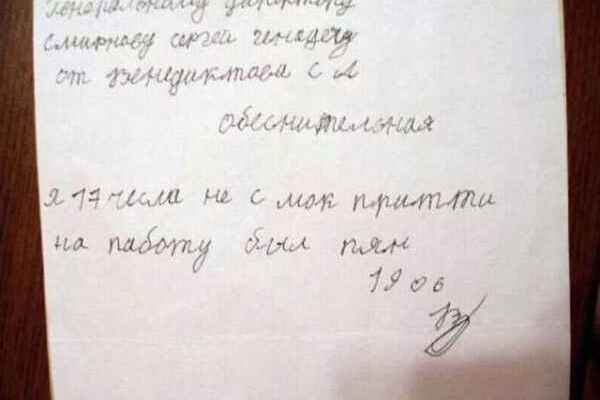 Генеральному директору
смирнову сергей генадечу
от Венедиктова С А
обеснительная
я 17 числа не с мок притти
на работу был пян
19 06